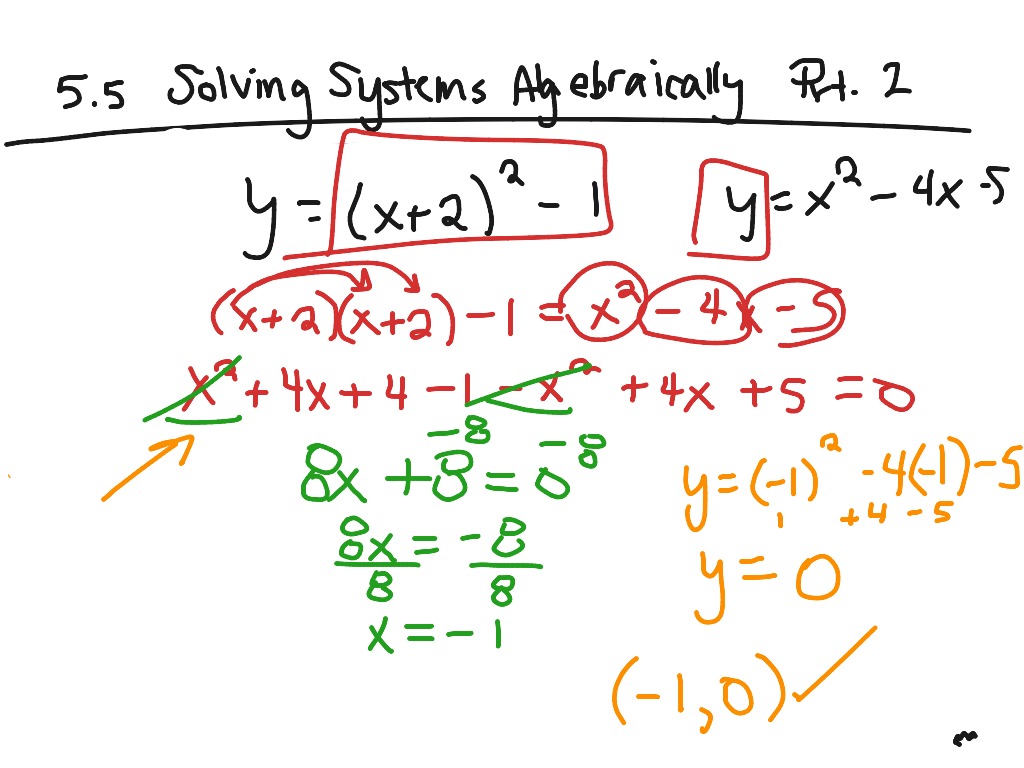 5.5 Solving Systems Algebraically Pt. 2
y = (x+2)² - 1    y = x² - 4x -5
(x+2)(x+2) - 1 = x² - 4x - 5
x² + 4x + 4 - 1 - x² + 4x + 5 = 0
-8 -8
8x + 8 = 0
y = (-1)² - 4(-1) - 5
1 + 4 - 5
8x = -8
8 8
y = 0
x = -1
(-1, 0)